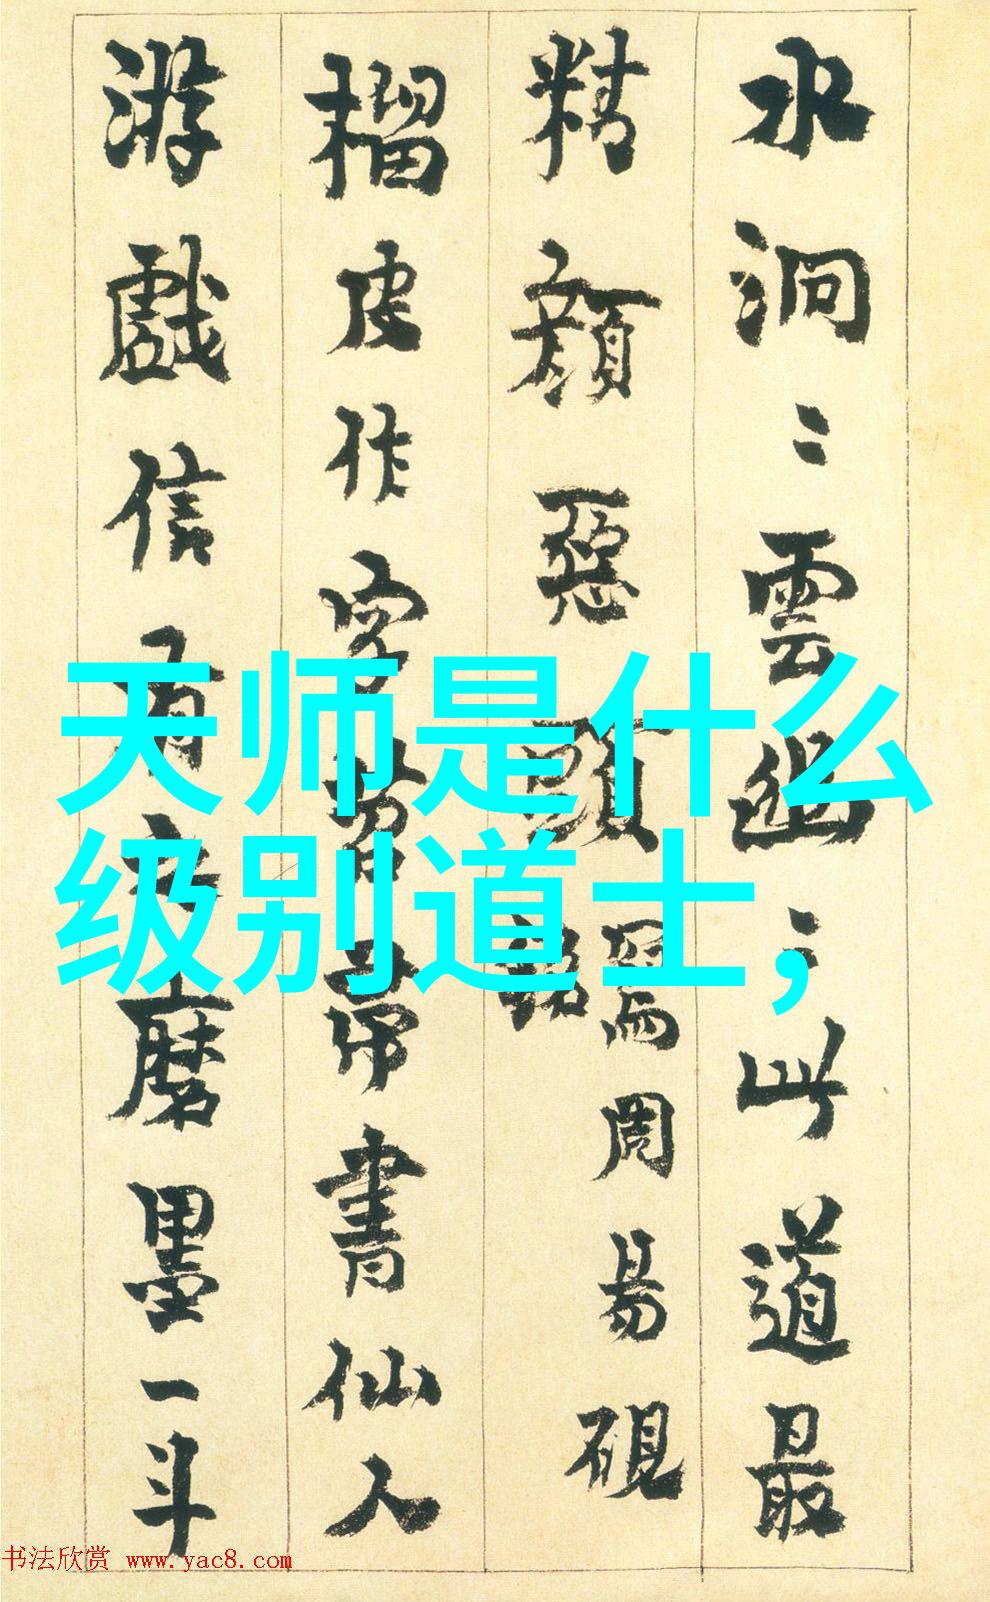 水洞〻雲幽〻此道最
精顏惡頭銘
罵周易硯
榴皮作字苕帚書仙人
游戲信有之磨墨一斗
天师是什么
级别道士，
书法欣赏 www.yac8.com